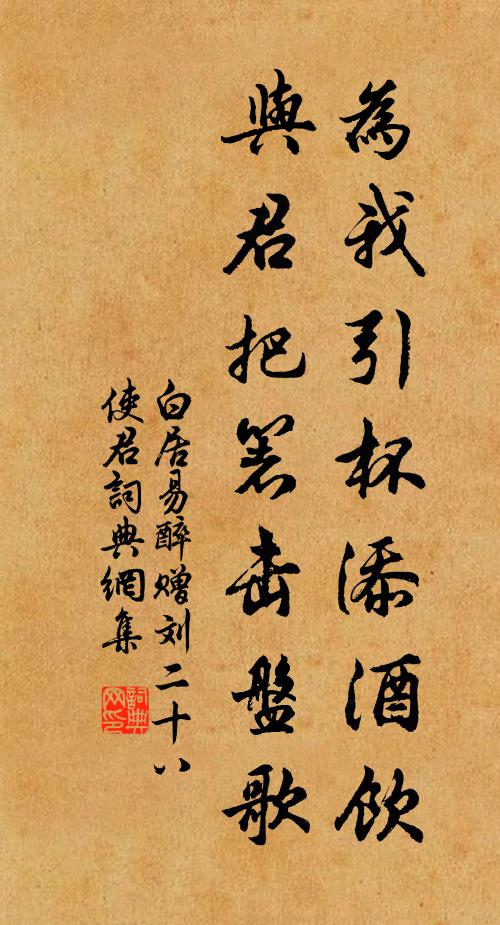 為我引杯添酒飲
與君把箸击盤歌
白居易醉赠刘二十八
使君詞典網集
詞典
网印